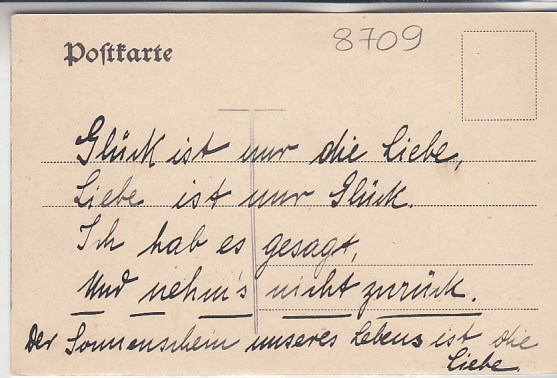 Postkarte
8709
Glück ist nur die Liebe,
Liebe ist nur Glück.
Ich hab es gesagt,
Und nehm's nicht zurück.
Der Sonnenschein unseres Lebens ist die
Liebe.